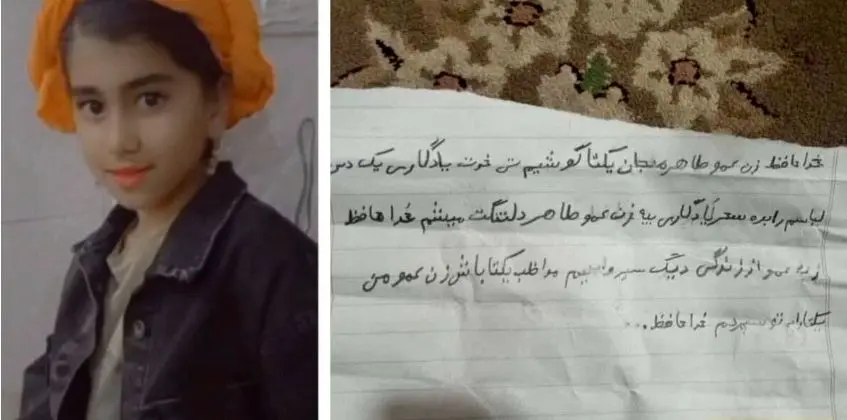 خداحافظ زن عمو طاهره جان یکتا گوشیم تی خوت یادگاری یک دس
لباسم را بده سحر یادگاری بیه فرت عمو طاهر دلتنگت میشم خداحافظ
زن عمو از زندگی دیگ سیر واییم مواظب یکتا باش زن عمو من
یکتارا به تو سپردم خداحافظ...